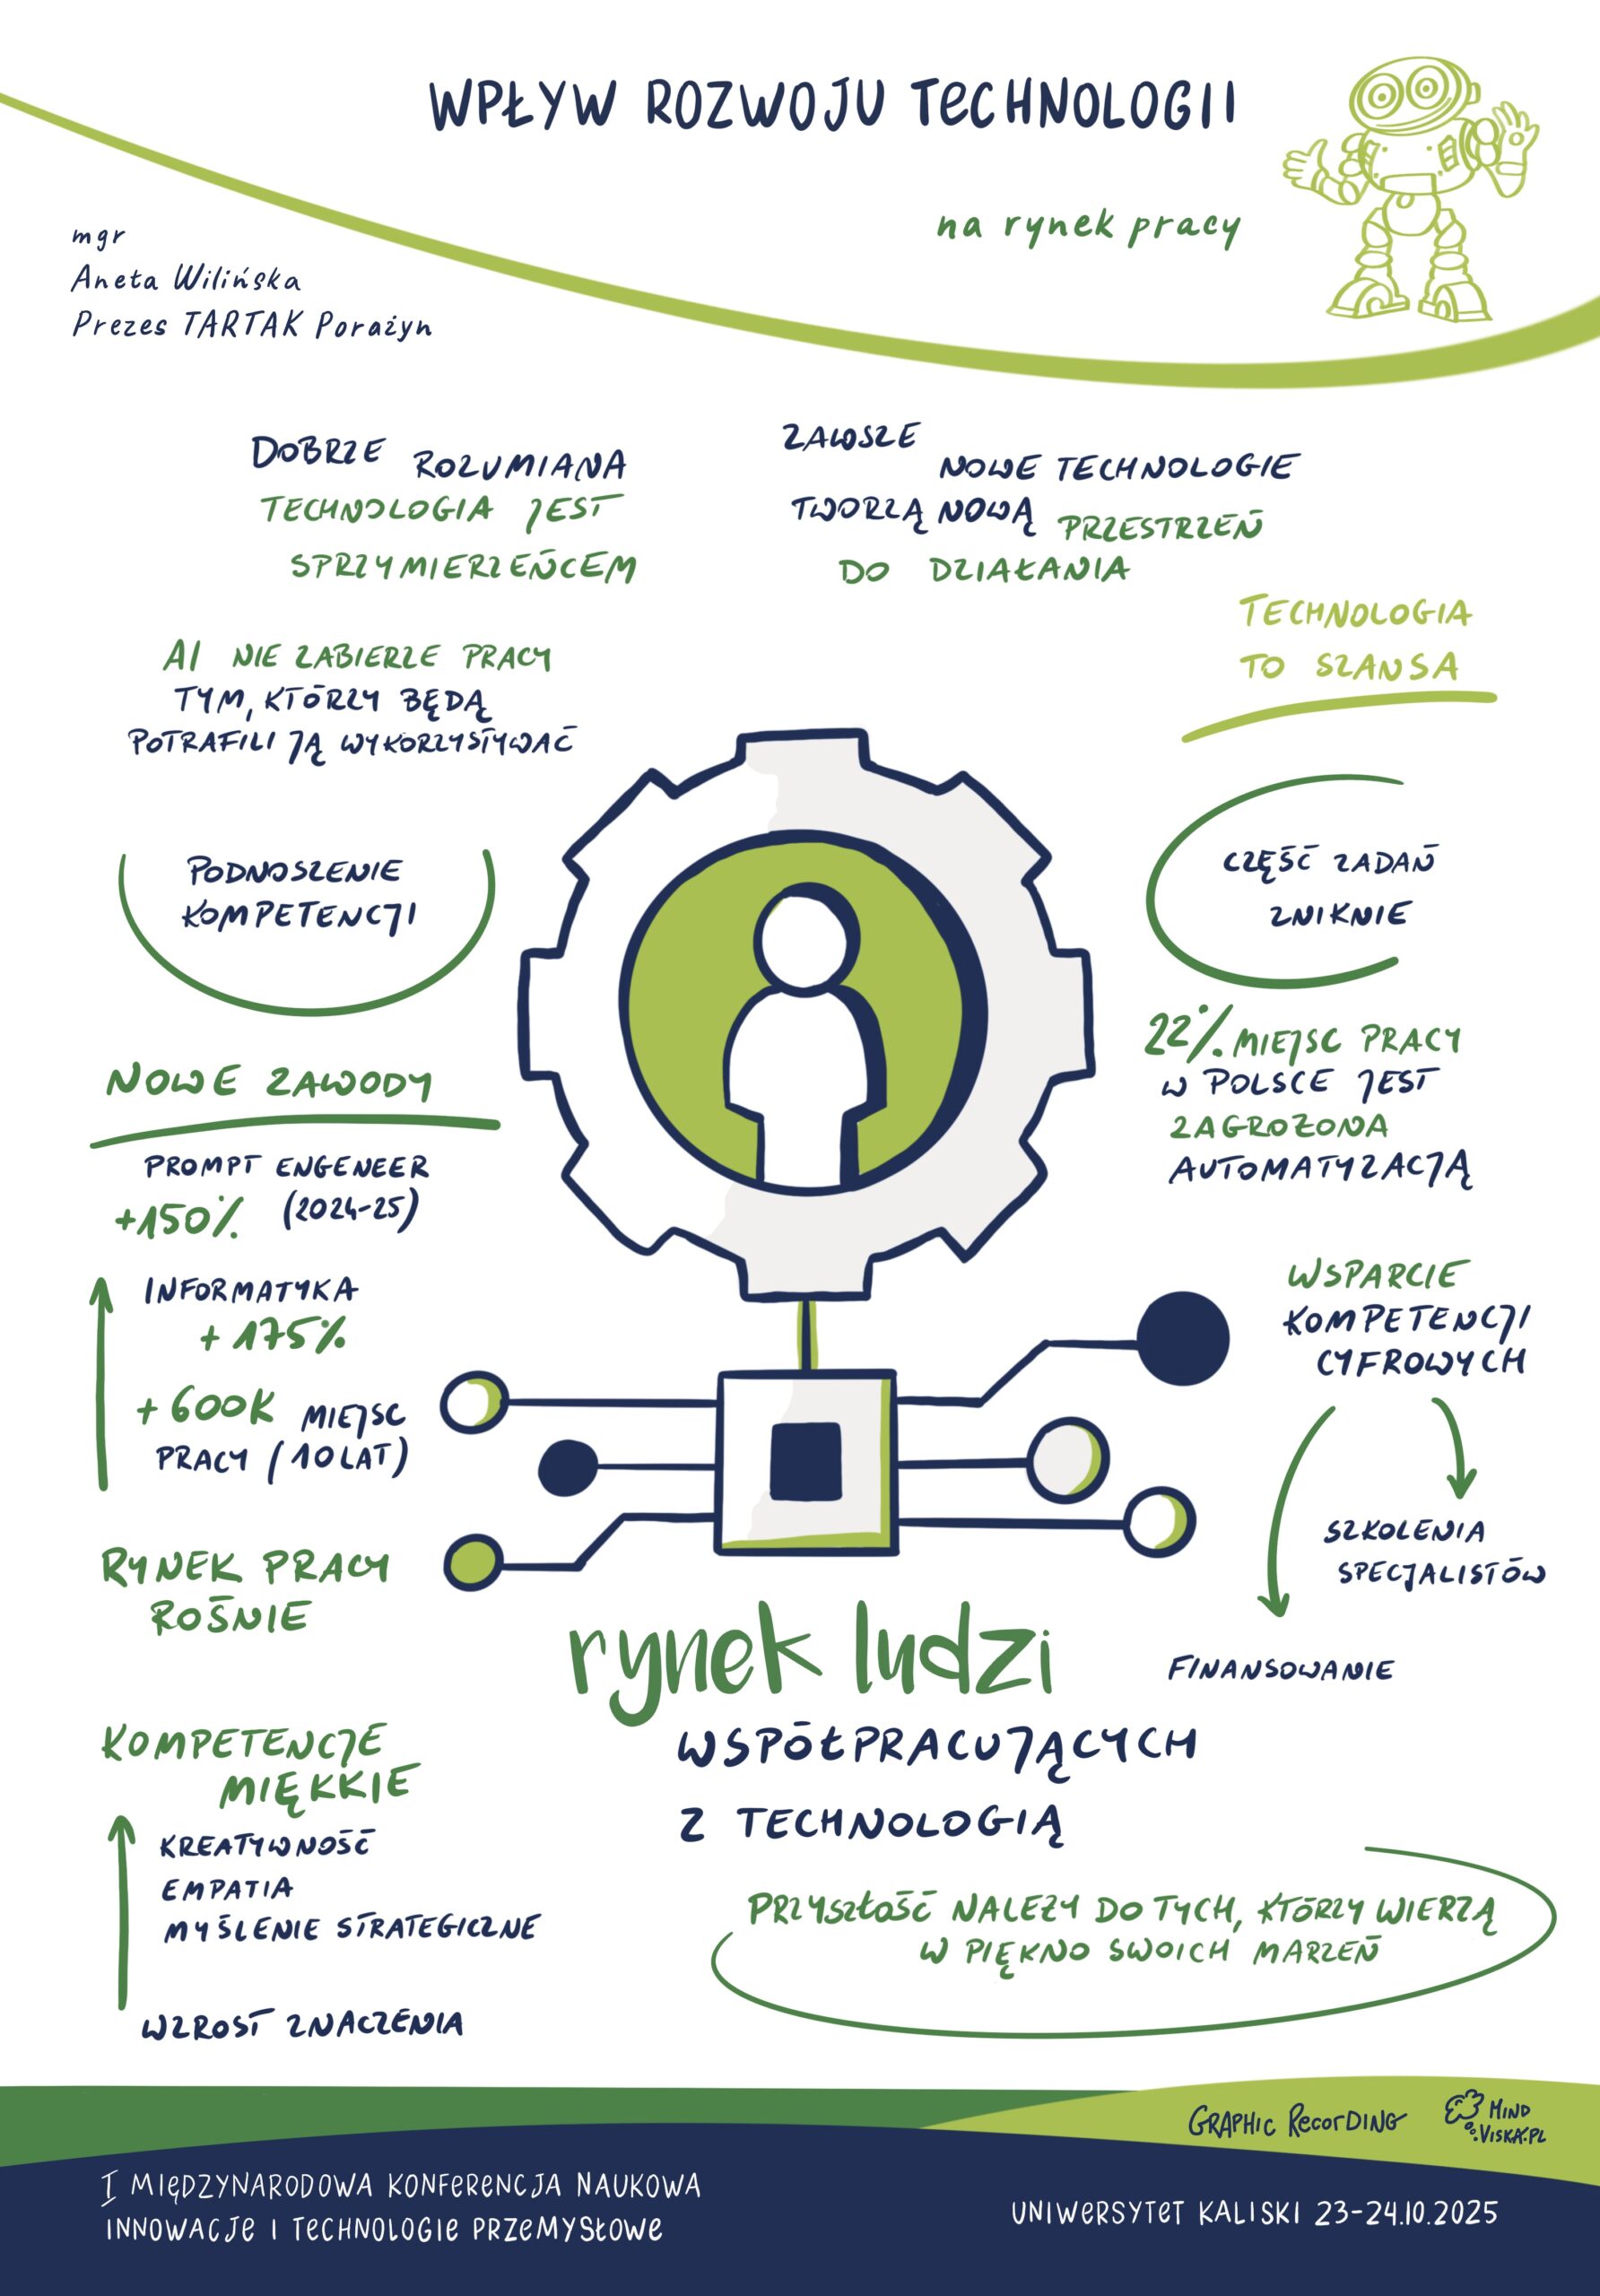 WPŁYW ROZWOJU TECHNOLOGII
na rynek pracy
mgr
Aneta Wilińska
Prezes TARTAK Porażyn
DOBRZE ROZUMIANA
TECHNOLOGIA JEST
SPRZYMIERZEŃCEM
ZAWSZE
NOWE TECHNOLOGIE
TWORZĄ NOWĄ PRZESTRZEŃ
DO DZIAŁANIA
TECHNOLOGIA
TO SZANSA
AI NIE ZABIERZE PRACY
TYM, KTÓRZY BĘDĄ
POTRAFILI JĄ WYKORZYSTYWAĆ
PODNOSZENIE
KOMPETENCJI
CZĘŚĆ ZADAŃ
ZNIKNIE
22% MIEJSC PRACY
W POLSCE JEST
ZAGROŻONA
AUTOMATYZACJĄ
NOWE ZAWODY
PROMPT ENGENEER
+150% (2024-25)
INFORMATYKA
+ 175%
+ 600K MIEJSC
PRACY (10 LAT)
WSPARCIE
KOMPETENCJI
CYFROWYCH
SZKOLENIA
SPECJALISTÓW
FINANSOWANIE
RYNEK PRACY
ROŚNIE
rynek ludzi
WSPÓŁPRACUJĄCYCH
Z TECHNOLOGIĄ
KOMPETENCJE
MIĘKKIE
KREATYWNOŚĆ
EMPATIA
MYŚLENIE STRATEGICZNE
WZROST ZNACZENIA
PRZYSZŁOŚĆ NALEŻY DO TYCH, KTÓRZY WIERZĄ
W PIĘKNO SWOICH MARZEŃ
GRAPHIC RECORDING
MIND
VISKA.PL
I MIĘDZYNARODOWA KONFERENCJA NAUKOWA
INNOWACJE I TECHNOLOGIE PRZEMYSŁOWE
UNIWERSYTET KALISKI 23-24.10.2025